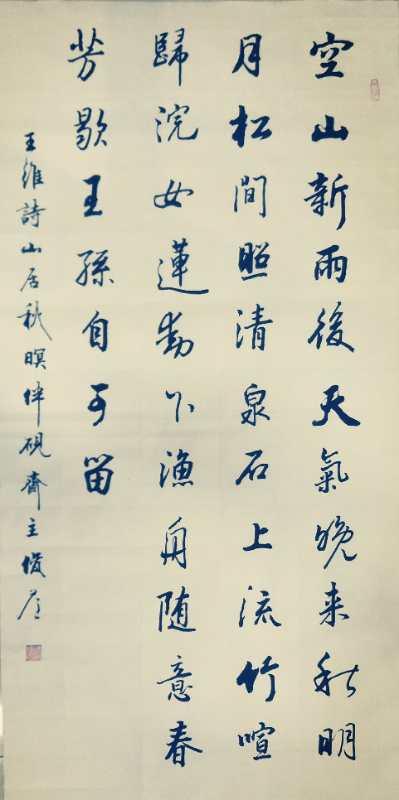 空山新雨後天氣晚来秋明
月松間照清泉石上流竹喧
歸浣女蓮動下漁舟随意春
芳歇王孫自可留
王維詩山居秋暝伴硯齋主俊